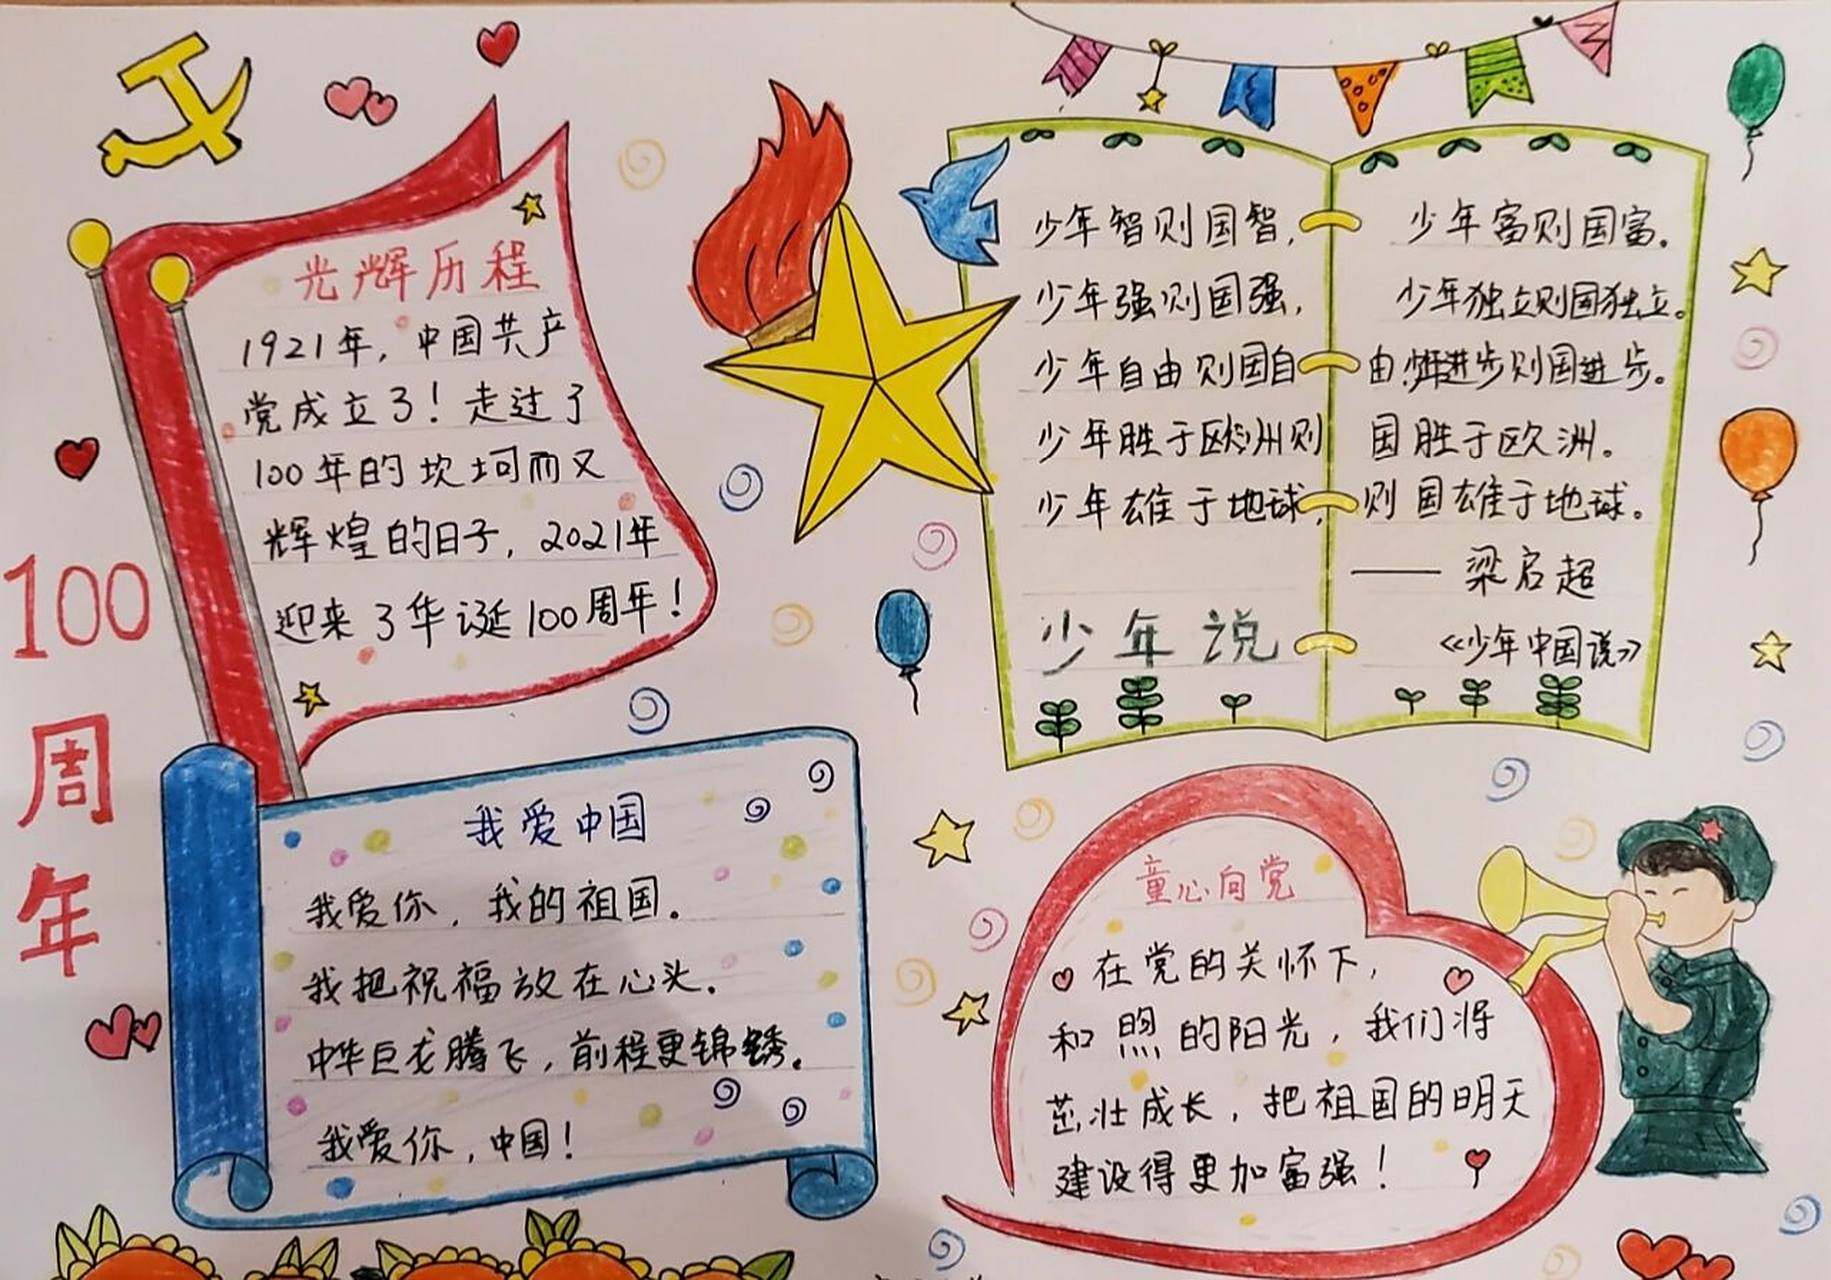 光辉历程
1921年，中国共产
党成立了！走过了
100年的坎坷而又
辉煌的日子，2021年
迎来了华诞100周年！
100
周
年
少年智则国智，少年富则国富。
少年强则国强，少年独立则国独立。
少年自由则国自由，少年进步则国进步。
少年胜于欧洲则国胜于欧洲。
少年雄于地球，则国雄于地球。
——梁启超
少年说
《少年中国说》
我爱中国
我爱你，我的祖国。
我把祝福放在心头。
中华巨龙腾飞，前程更锦绣。
我爱你，中国！
童心向党
在党的关怀下，
和煦的阳光，我们将
茁壮成长，把祖国的明天
建设得更加富强！